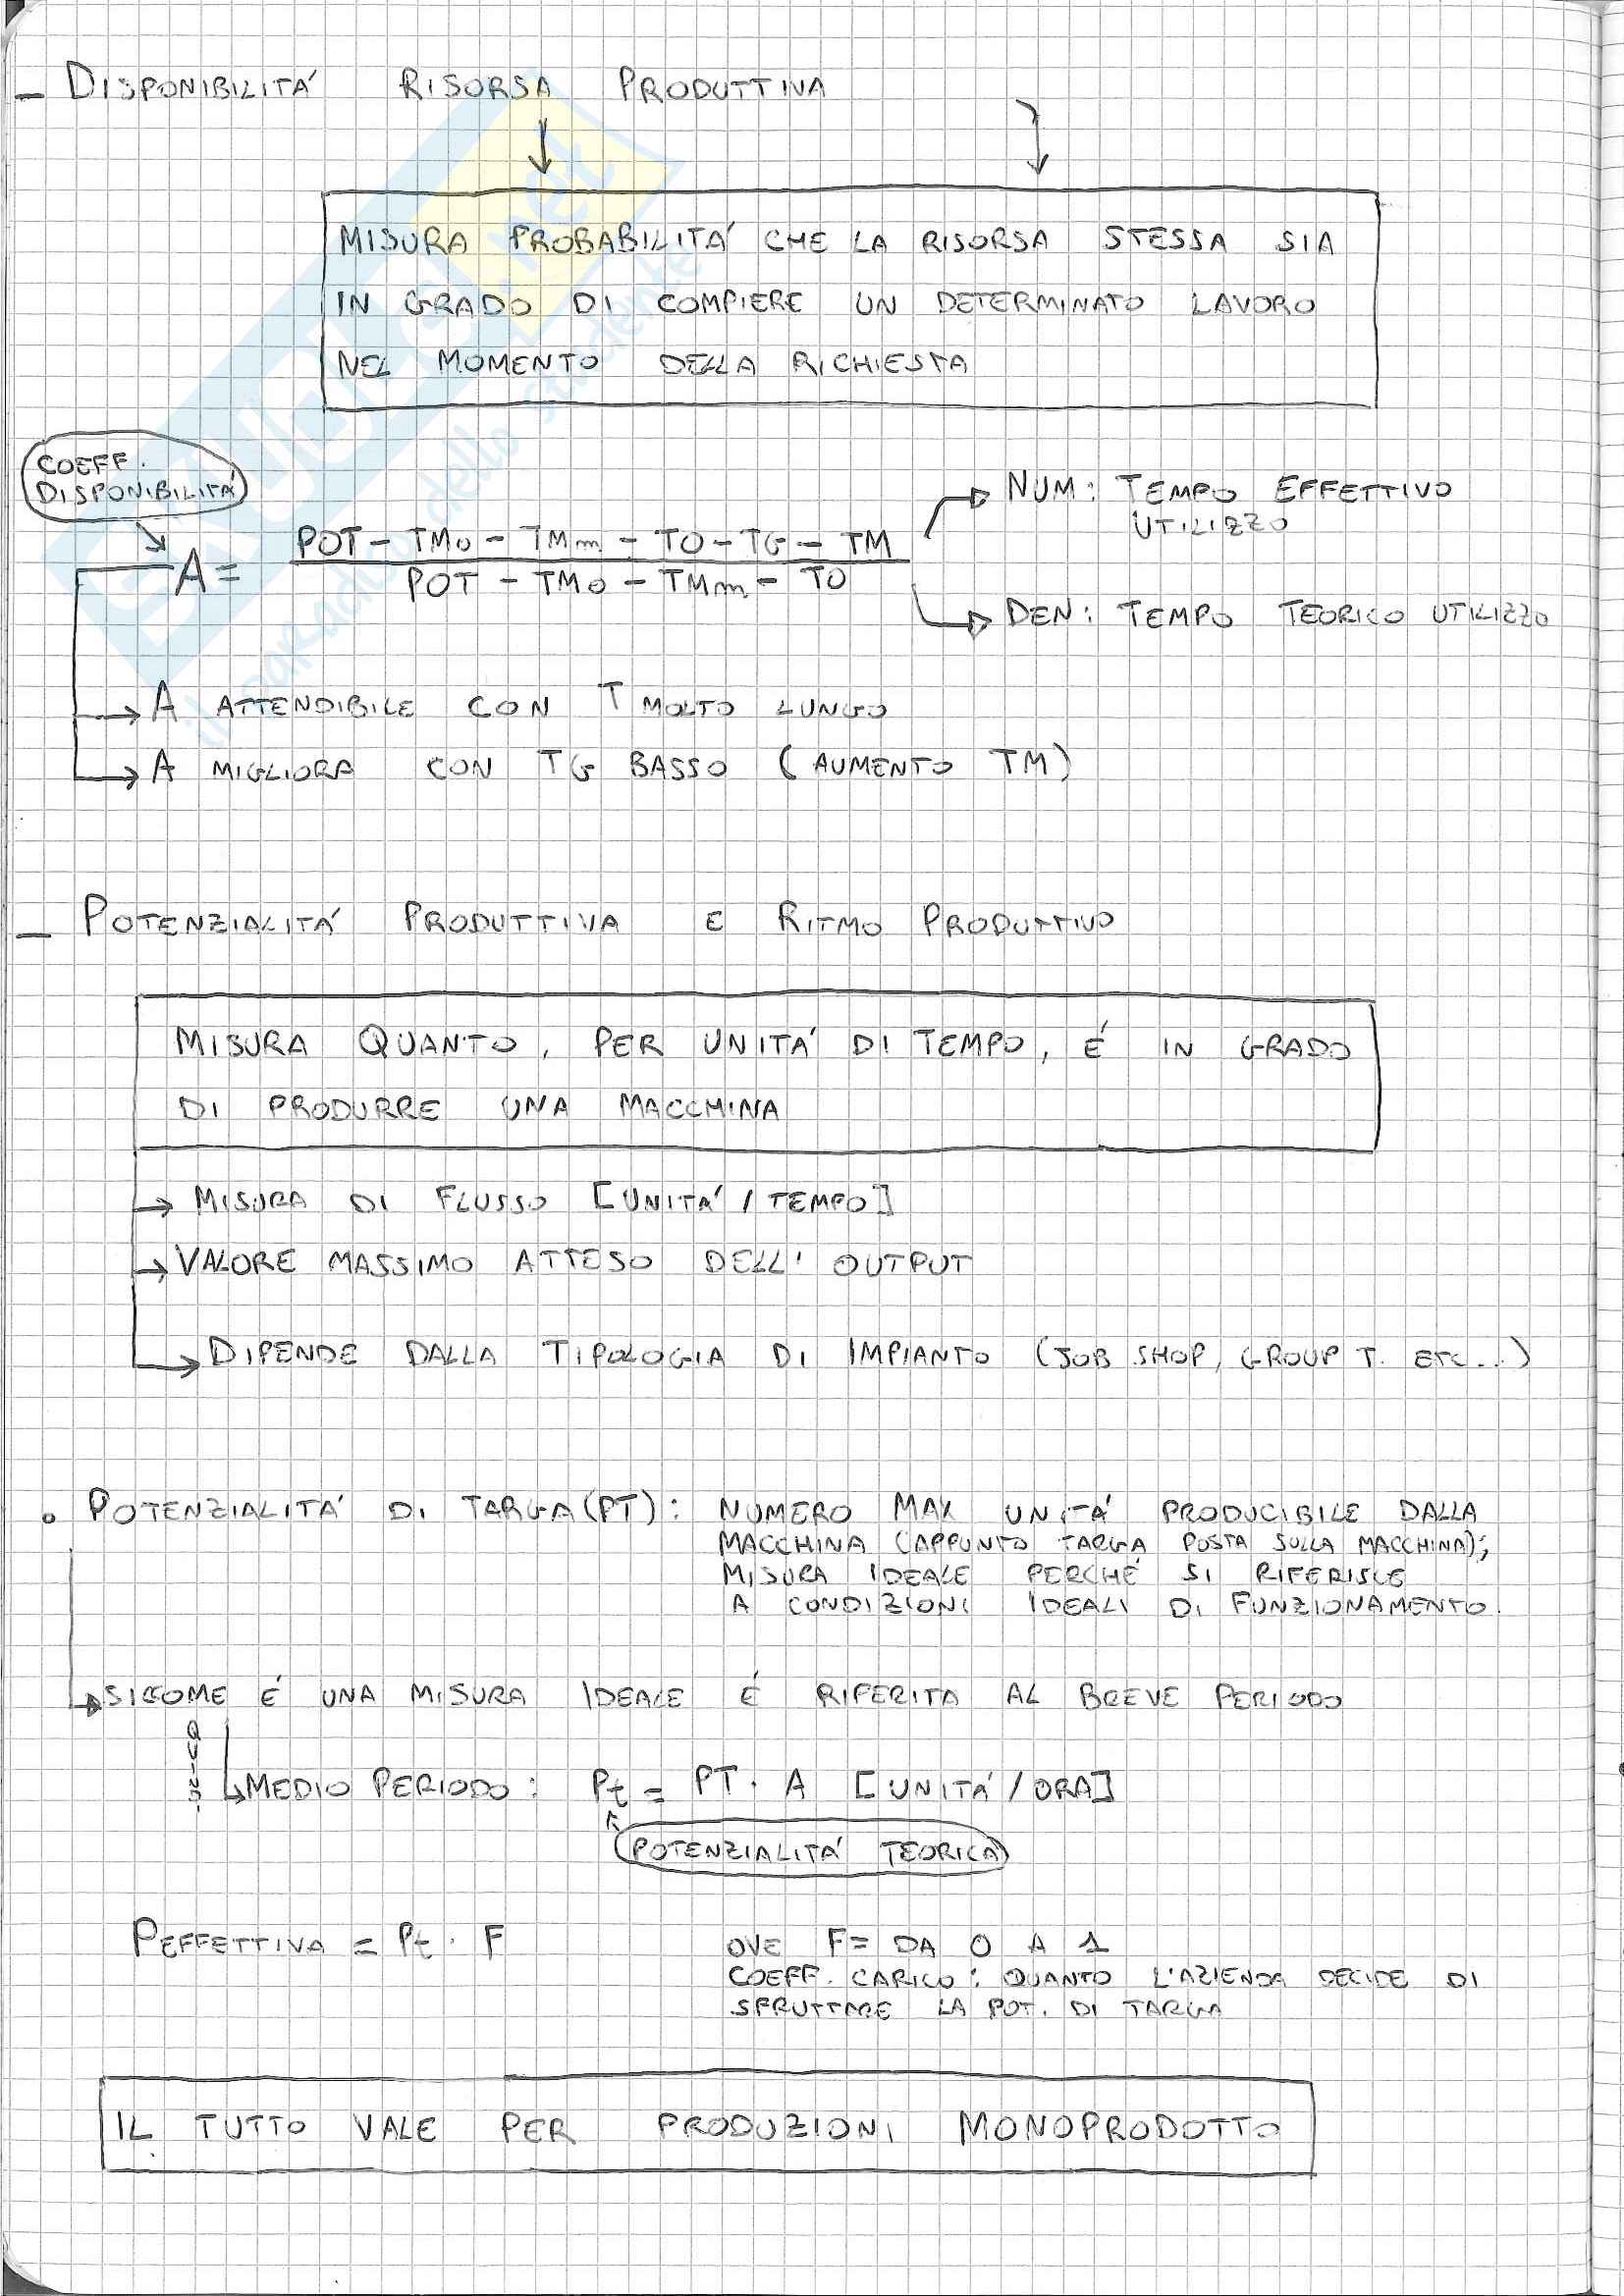 – DISPONIBILITÁ RISORSA PRODUTTIVA
MISURA PROBABILITÁ CHE LA RISORSA STESSA SIA
IN GRADO DI COMPIERE UN DETERMINATO LAVORO
NEL MOMENTO DELLA RICHIESTA
COEFF.
DISPONIBILITÁ
NUM: TEMPO EFFETTIVO
UTILIZZO
A = POT - TMo - TMm - TO - TG - TM
POT - TMo - TMm - TO
DEN: TEMPO TEORICO UTILIZZO
A ATTENDIBILE CON T MOLTO LUNGO
A MIGLIORA CON TG BASSO (AUMENTO TM)
– POTENZIALITÁ PRODUTTIVA E RITMO PRODUTTIVO
MISURA QUANTO, PER UNITÁ DI TEMPO, É IN GRADO
DI PRODURRE UNA MACCHINA
→ MISURA DI FLUSSO [UNITÁ / TEMPO]
→ VALORE MASSIMO ATTESO DELL' OUTPUT
→ DIPENDE DALLA TIPOLOGIA DI IMPIANTO (JOB SHOP, GROUP T. ETC...)
• POTENZIALITÁ DI TARGA (PT): NUMERO MAX UNITÁ PRODUCIBILE DALLA
MACCHINA (APPUNTO TARGA POSTA SULLA MACCHINA);
MISURA IDEALE PERCHÉ SI RIFERISCE
A CONDIZIONI IDEALI DI FUNZIONAMENTO.
SICCOME É UNA MISURA IDEALE É RIFERITA AL BREVE PERIODO
QUINDI
MEDIO PERIODO: Pt = PT · A [UNITÁ / ORA]
POTENZIALITÁ TEORICA
PEFFETTIVA = Pt · F OVE F = DA 0 A 1
COEFF. CARICO: QUANTO L'AZIENDA DECIDE DI
SFRUTTARE LA POT. DI TARGA
IL TUTTO VALE PER PRODUZIONI MONOPRODOTTO